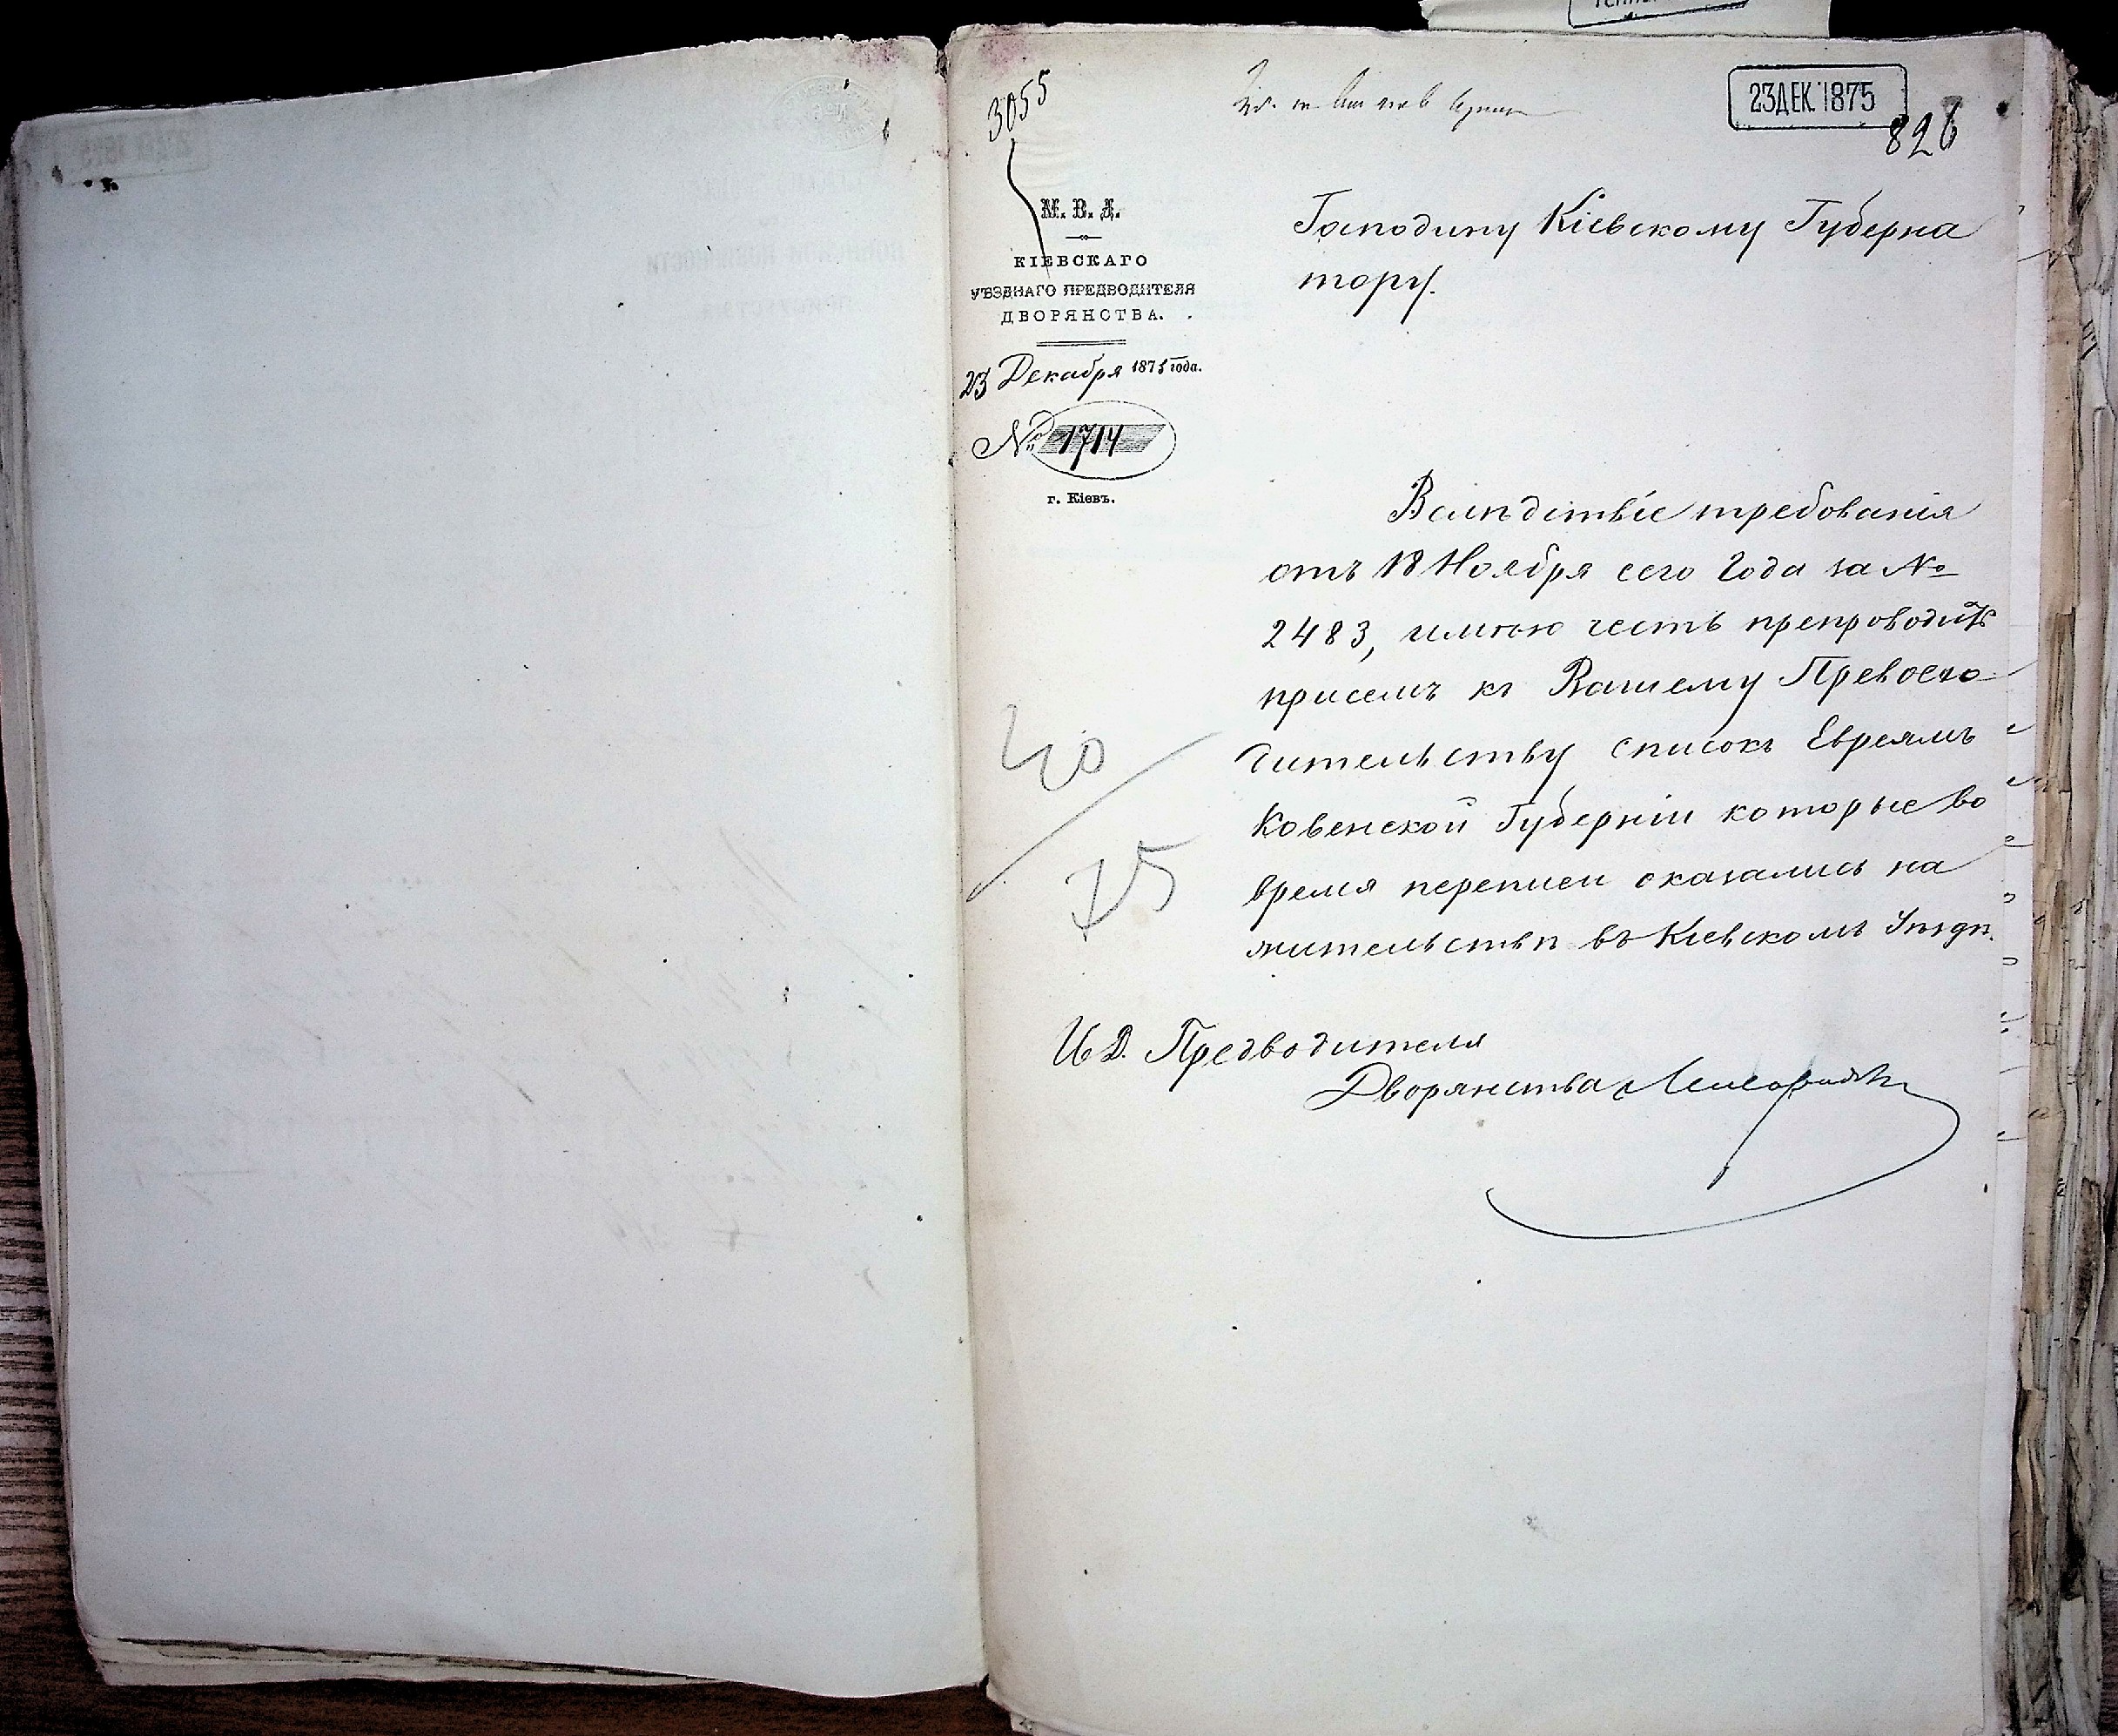 3055
23 ДЕК. 1875
826
М. В. Д.
КІЕВСКАГО
УѢЗДНАГО ПРЕДВОДИТЕЛЯ
ДВОРЯНСТВА.
23 Декабря 1875 года.
№ 1714
г. Кіевъ.
Господину Кіевскому Губерна
тору.
Вслѣдствіе требованія
отъ 18 Ноября сего Года за №
2483, имѣю честь препроводить
присемъ къ Вашему Превосхо
дительству списокъ Евреямъ
Ковенской Губерніи которые во
время переписи оказались на
жительствѣ въ Кіевскомъ Уѣздѣ.
40/75
И Д. Предводителя
Дворянства